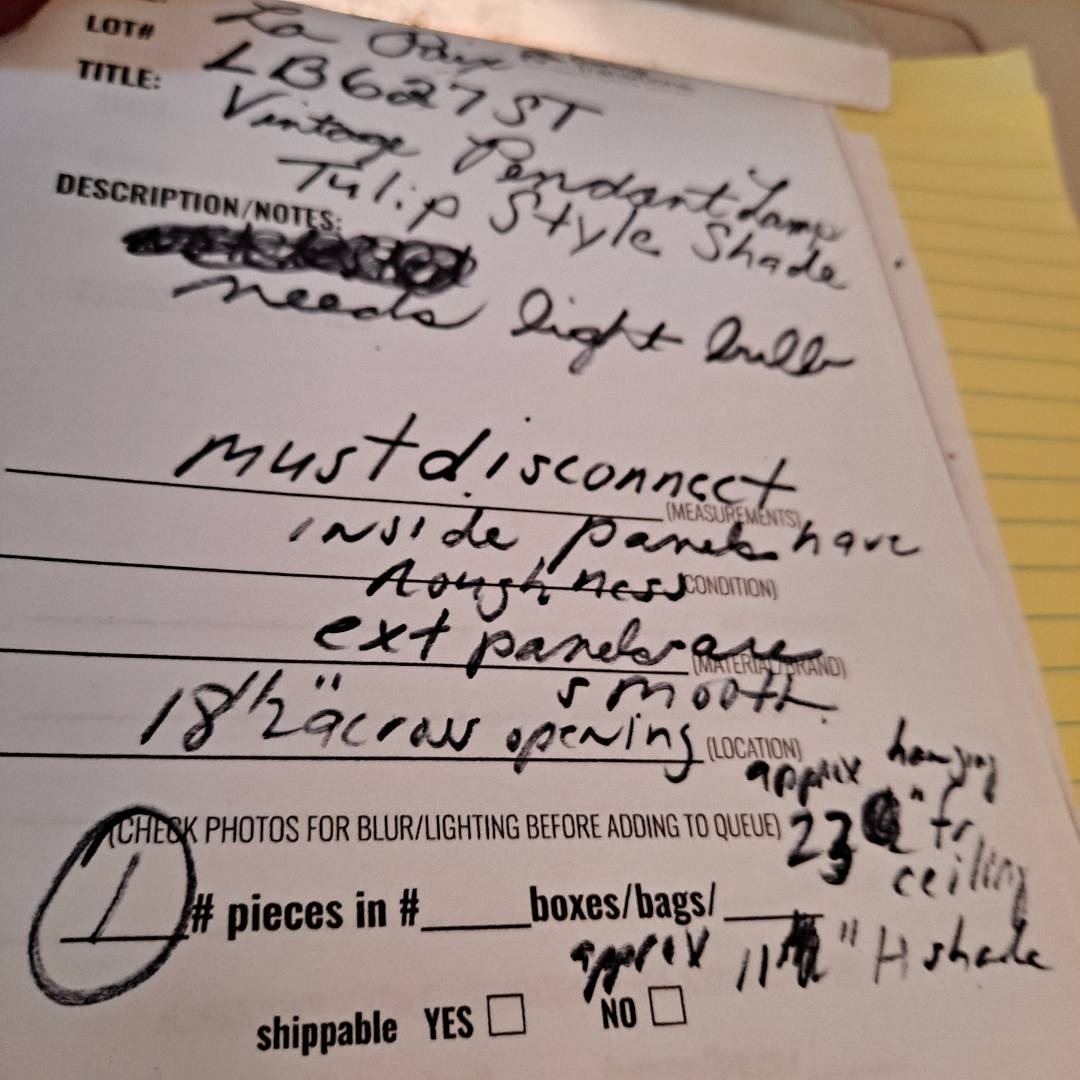 LOT# La Paix
LB627ST
TITLE: Vintage Pendant Lamp
Tulip Style Shade
DESCRIPTION/NOTES:
needs light bulb
must disconnect
(MEASUREMENTS)
inside panels have
roughness (CONDITION)
ext panels are
(MATERIAL/BRAND)
smooth
18 1/2" across opening (LOCATION)
approx hanging
(CHECK PHOTOS FOR BLUR/LIGHTING BEFORE ADDING TO QUEUE) 23 " fr
ceiling
1 # pieces in #_____boxes/bags/_____
approx 11 " H shade
shippable YES □ NO □